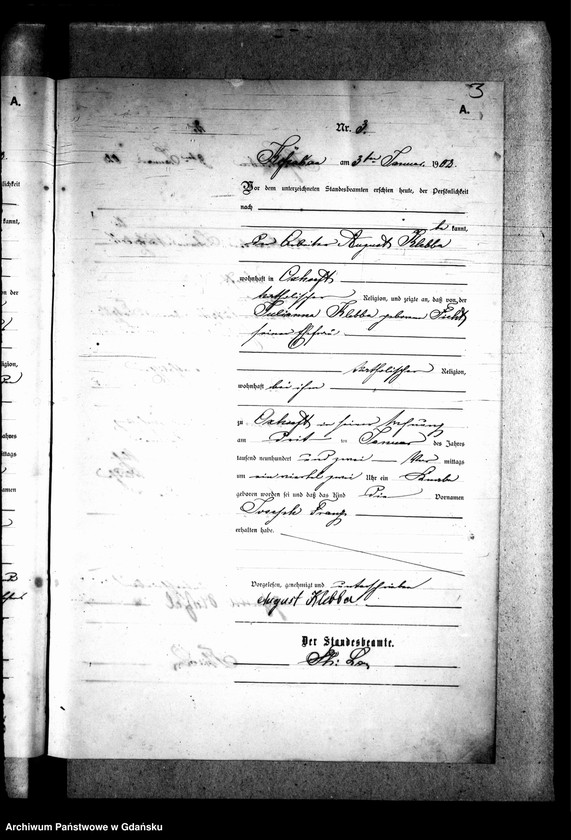 3
A.
A.
Nr. 3.
am 3ten Januar 1902.
Vor dem unterzeichneten Standesbeamten erschien heute, der Persönlichkeit
nach
kannt,
Der Arbeiter August Klebba
wohnhaft in Oxhoeft
katholischer Religion, und zeigte an, daß von der
Julianna Klebba geborenen
seiner Ehefrau
katholischer Religion,
wohnhaft bei ihm
zu Oxhoeft in seiner Wohnung
am drei ten Januar des Jahres
tausend neunhundert und zwei Vor mittags
um ein viertel zwei Uhr ein Knabe
geboren worden sei und daß das Kind die Vornamen
Joseph Franz
erhalten habe.
Vorgelesen, genehmigt und unterschrieben
August Klebba
Der Standesbeamte.
Archiwum Państwowe w Gdańsku